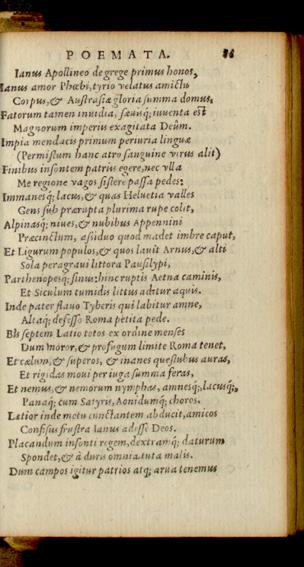 POEMATA. 86
Ianus Apollineo de grege primus honos,
Ianus amor Phœbi, tyrio velatus amictu
Corpus, & Austrasiæ gloria summa domus,
Fatorum tamen inuidia, sæuaq; iuuenta est
Magnorum imperiis exagitata Deûm.
Impia mendacis primum periuria linguæ
(Permistum hanc atro sanguine virus alit)
Finibus insontem patriis egere, nec vlla
Me regione vagos sistere passa pedes:
Immanesq; lacus, & quas Heluetia valles
Gens sub prærupta plurima rupe colit,
Alpinasq; niues, & nubibus Appennini
Præcinctum, assiduo quod madet imbre caput,
Et Ligurum populos, & quos lauit Arnus, & alti
Sola peragraui littora Pausilypi,
Parthenopesq; sinus: hinc ruptis Aetna caminis,
Et Siculum tumidis littus aditur aquis.
Inde pater flauo Tyberis qui labitur amne,
Altaq; defesso Roma petita pede.
Bis septem Latio totos ex ordine menses
Dum moror, & profugum limite Roma tenet,
Et cælum, & superos, & inanes questubus auras,
Et rigidas moui per iuga summa feras,
Et nemus, & nemorum nymphas, amnesq;, lacusq;,
Panaq; cum Satyris, Aonidumq; choros.
Latior inde metu cunctantem abducit, amicos
Confisus frustra Ianus adesse Deos.
Placandum insonti regem, dextramq; daturum
Spondet, & à duris omnia tuta malis.
Dum campos igitur patrios atq; arua tenemus